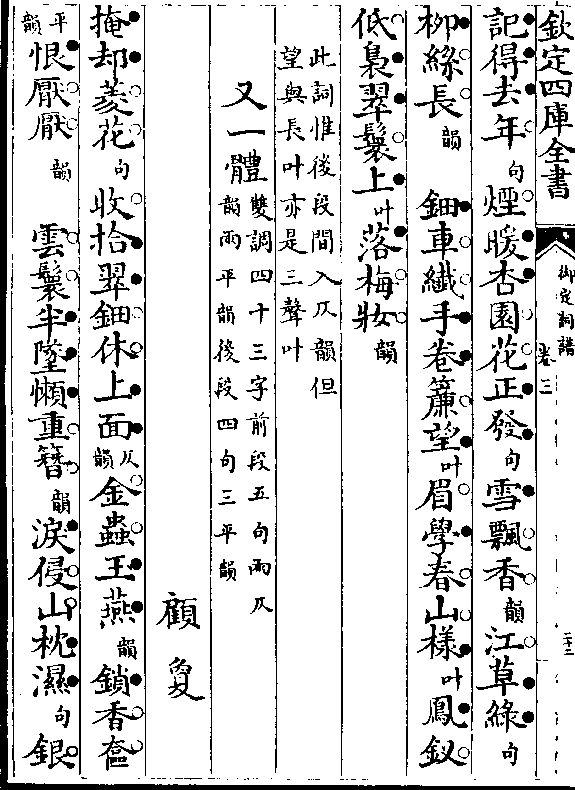 欽定四庫全書
御定詞譜
卷三
二十二
記得去年句煙暖杏園花正發句雪飄香韻江草綠句
柳絲長韻 鈿車纖手卷簾望叶眉學春山樣叶鳳釵
低裊翠鬟上叶落梅妝韻
此詞惟後段間入仄韻但
望與長叶亦是三聲叶
又一體雙調四十三字前段五句兩仄
韻兩平韻後段四句三平韻
顧敻
掩却菱花句收拾翠鈿休上面仄韻金蟲玉燕韻鎖香奩
平韻恨厭厭韻 雲鬟半墜懶重簪韻淚侵山枕濕句銀